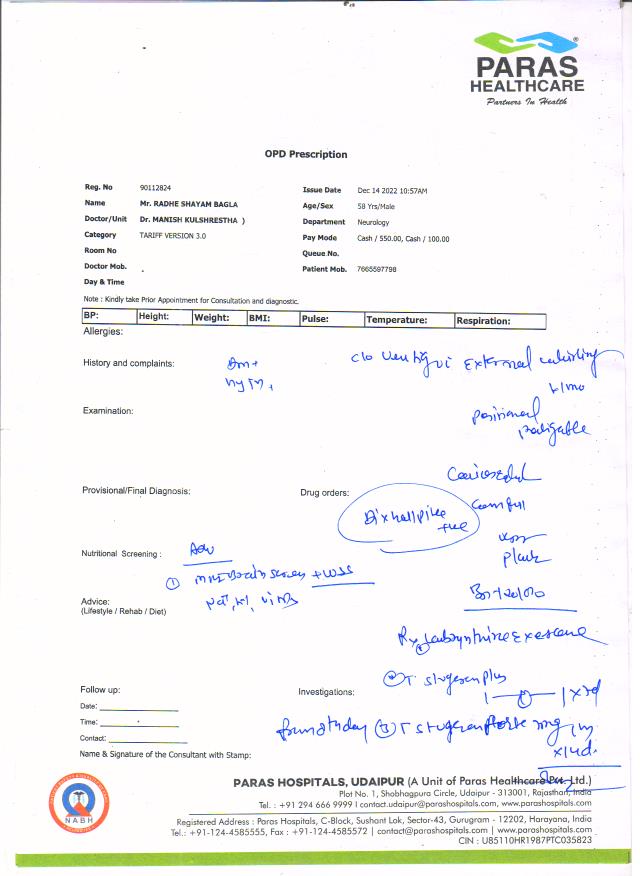 PARAS
HEALTHCARE
Partners In Health
OPD Prescription
Reg. No 90112824
Issue Date Dec 14 2022 10:57AM
Name Mr. RADHE SHAYAM BAGLA
Age/Sex 58 Yrs/Male
Doctor/Unit Dr. MANISH KULSHRESTHA )
Department Neurology
Category TARIFF VERSION 3.0
Pay Mode Cash / 550.00, Cash / 100.00
Room No
Queue No.
Doctor Mob.
Patient Mob. 7665597798
Day & Time
Note : Kindly take Prior Appointment for Consultation and diagnostic.
BP: Height: Weight: BMI: Pulse: Temperature: Respiration:
Allergies:
History and complaints: DM+ c/o vertigo External
HTN+
Examination: positional
Provisional/Final Diagnosis: Drug orders:
Dixhallpike
+ve
Nutritional Screening : Adv
① MRI Brain Screen + WSS
Advice:
(Lifestyle / Rehab / Diet)
Rx ① Labyrinthine Exercise
② T stugeron plus
Follow up: Investigations:
1 — 0 — 1 x
Date:
③ T stugeron forte
Time:
Contact:
Name & Signature of the Consultant with Stamp:
NABH
PARAS HOSPITALS, UDAIPUR (A Unit of Paras Healthcare Pvt. Ltd.)
Plot No. 1, Shobhagpura Circle, Udaipur - 313001, Rajasthan, India
Tel. : +91 294 666 9999 I contact.udaipur@parashospitals.com, www.parashospitals.com
Registered Address : Paras Hospitals, C-Block, Sushant Lok, Sector-43, Gurugram - 12202, Harayana, India
Tel.: +91-124-4585555, Fax : +91-124-4585572 | contact@parashospitals.com | www.parashospitals.com
CIN : U85110HR1987PTC035823